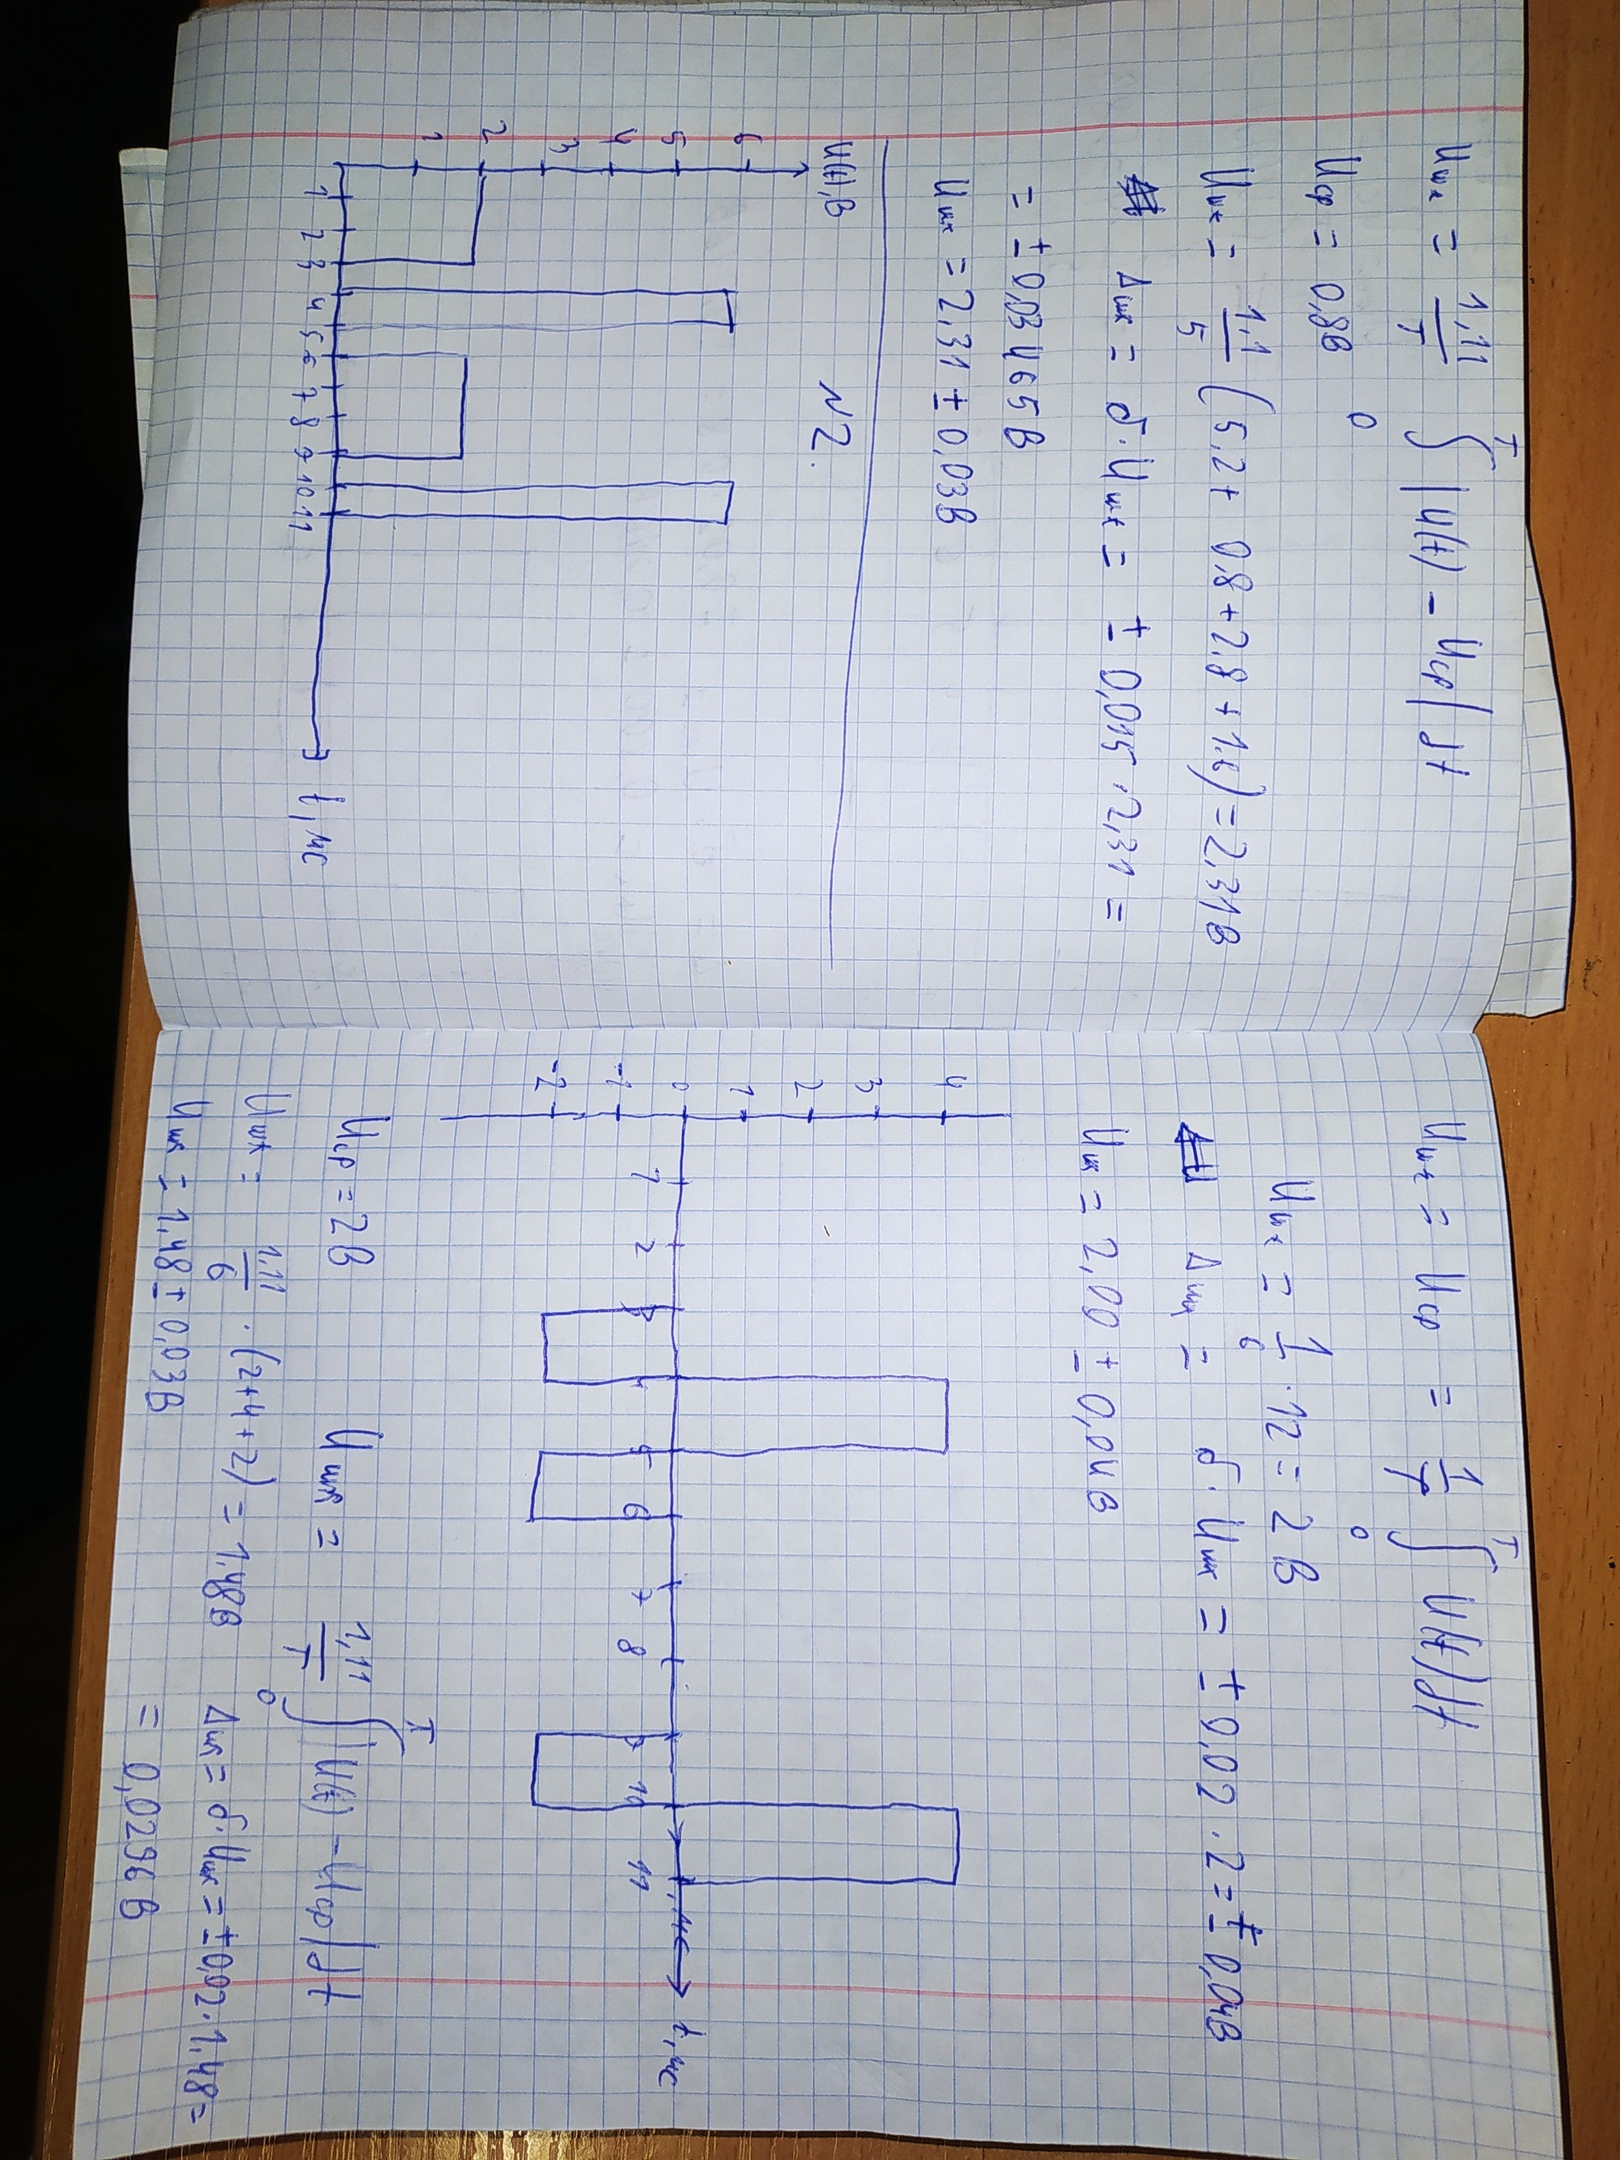 Uшк = 1,11/T ∫₀ᵀ |U(t) - Uср| dt
Uср = 0,8В
Uшк = 1,1/5 (5,2 + 0,8 + 2,8 + 1.6) = 2,31В
Δшк = δ · Uшк = ± 0,015 · 2,31 =
= ± 0,03465В
Uшк = 2,31 ± 0,03В
N2.
U(t),В
6
5
4
3
2
1
1 2 3 4 5 6 7 8 9 10 11
t, мс
Uшк = Uср = 1/T ∫₀ᵀ U(t) dt
Uшк = 1/6 · 12 = 2 В
Δшк = δ · Uшк = ± 0,02 · 2 = ± 0,04В
Uшк = 2,00 ± 0,04В
4
3
2
1
0
-1
-2
1 2 3 4 5 6 7 8 9 10 11
t, мс
Uср = 2В Uшк = 1,11/T ∫₀ᵀ |U(t) - Uср| dt
Uшк = 1,11/6 · (2+4+2) = 1,48В Δшк = δ·Uшк = ±0,02·1,48 =
= 0,0296 В
Uшк = 1,48 ± 0,03В